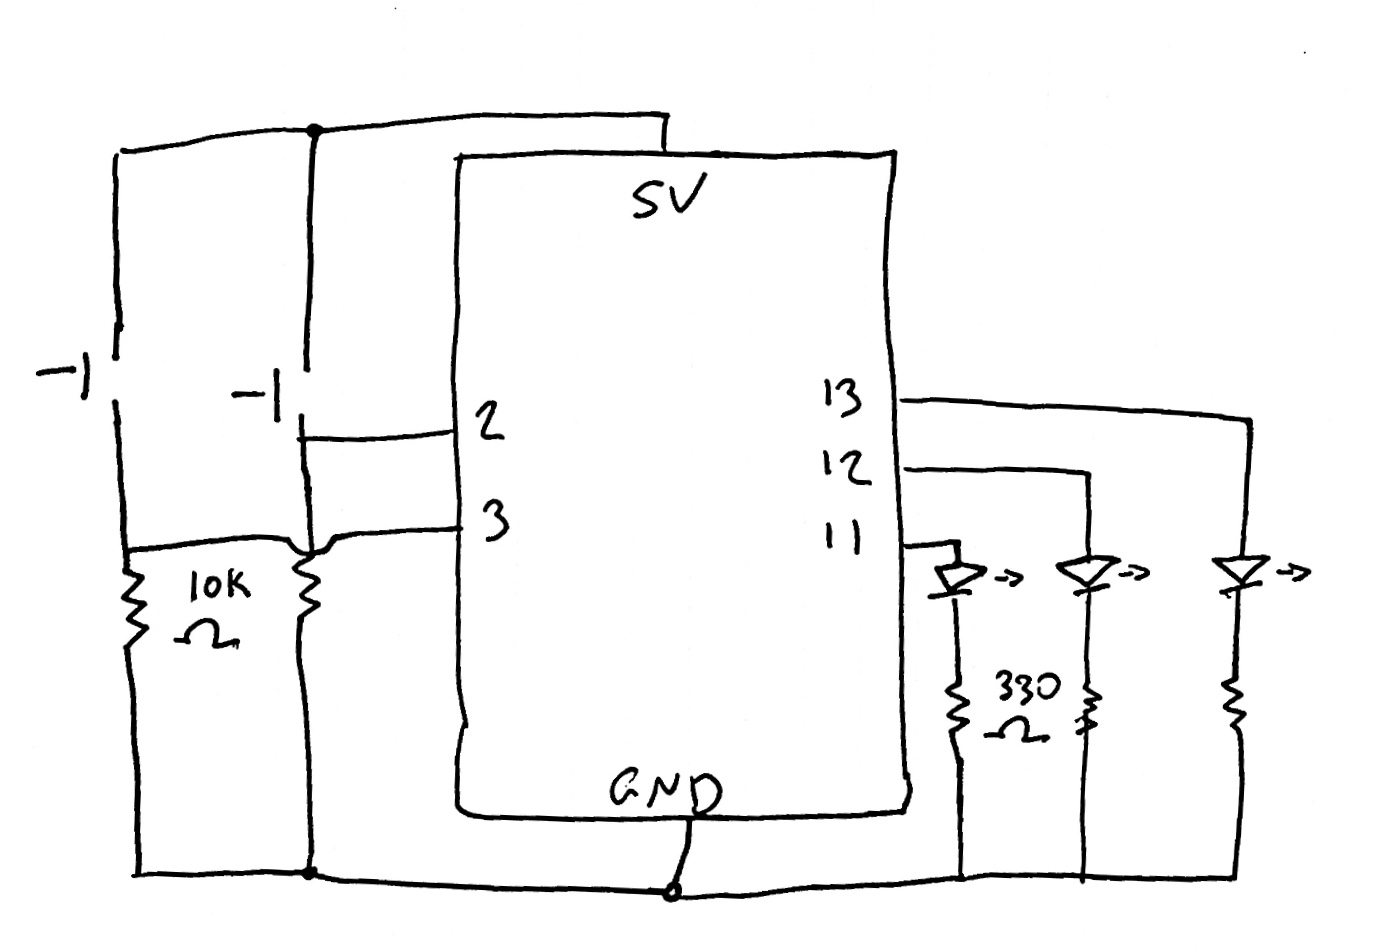 5V
2
3
13
12
11
10K
Ω
330
Ω
GND